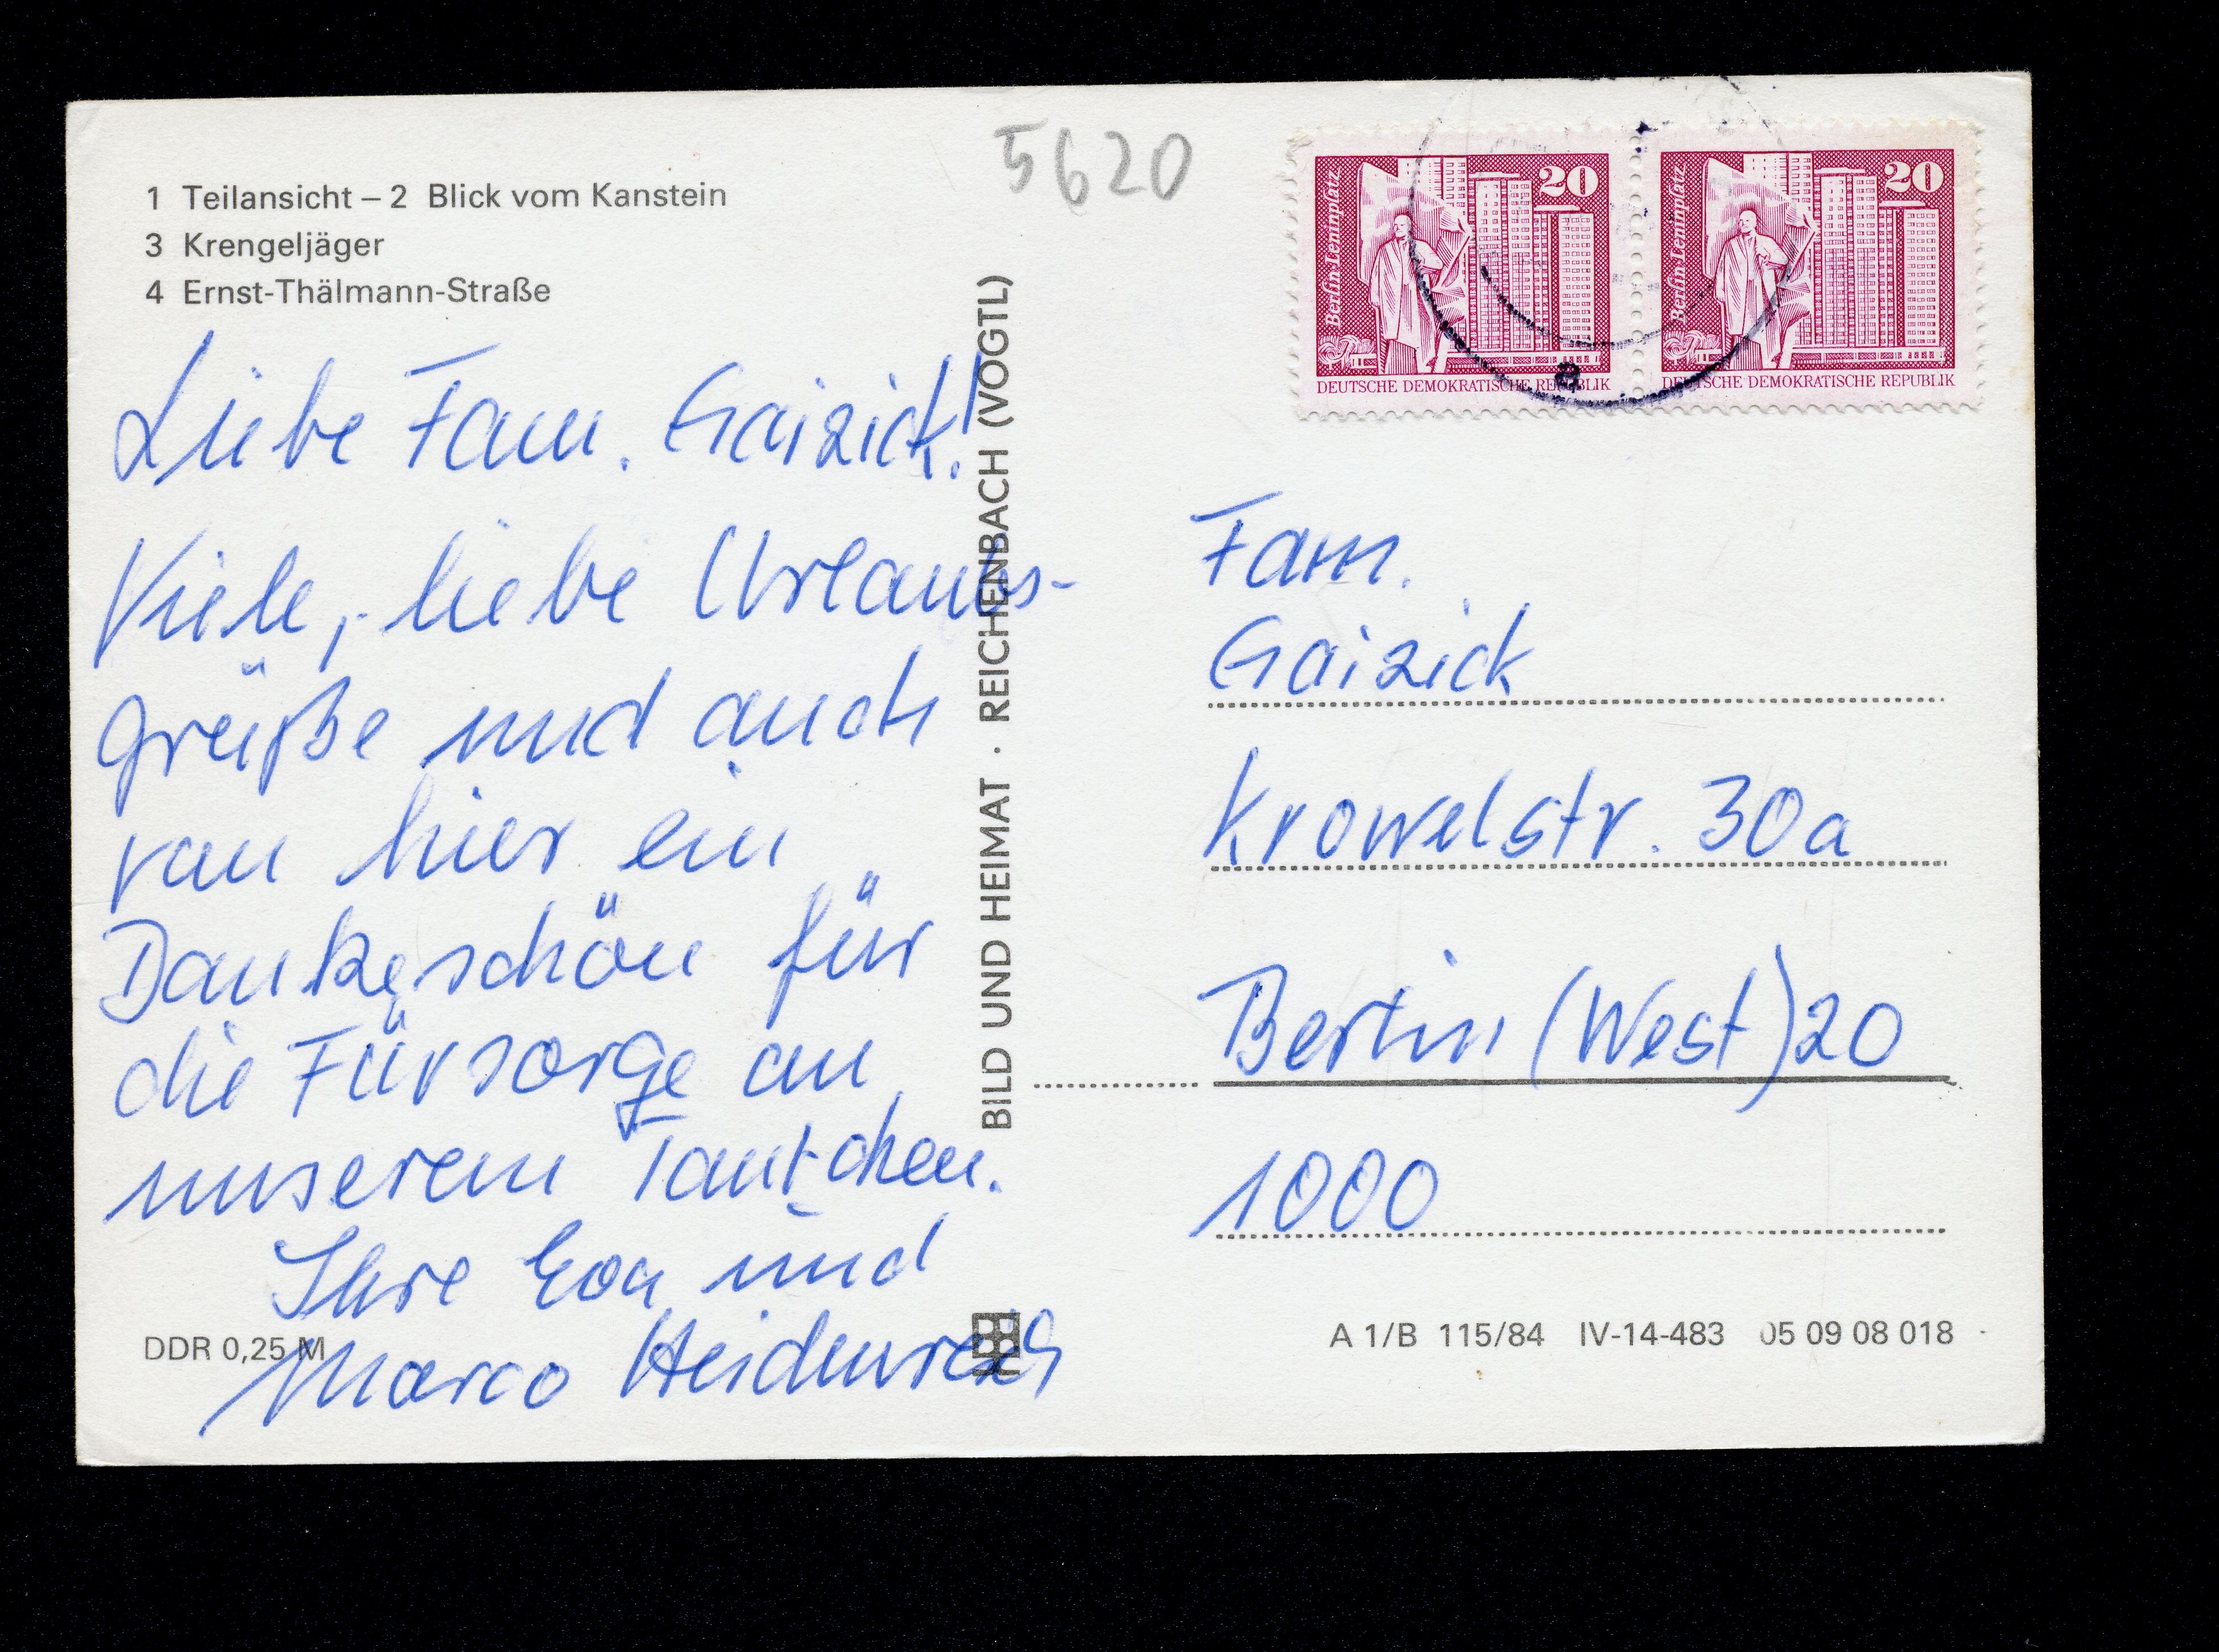 1 Teilansicht – 2 Blick vom Kanstein
3 Krengeljäger
4 Ernst-Thälmann-Straße
Liebe Fam. Gaizick!
Viele, liebe Urlaubs-
grüße und auch
von hier ein
Dankeschön für
die Fürsorge an
unserem Tantchen.
Ihre Eva und
Marco Heidenreich
DDR 0,25 M
BILD UND HEIMAT · REICHENBACH (VOGTL)
5620
Berlin-Leninplatz
20
DEUTSCHE DEMOKRATISCHE REPUBLIK
Berlin-Leninplatz
20
DEUTSCHE DEMOKRATISCHE REPUBLIK
a
Fam.
Gaizick
Krowelstr. 30a
Berlin (West) 20
1000
A 1/B 115/84 IV-14-483 05 09 08 018